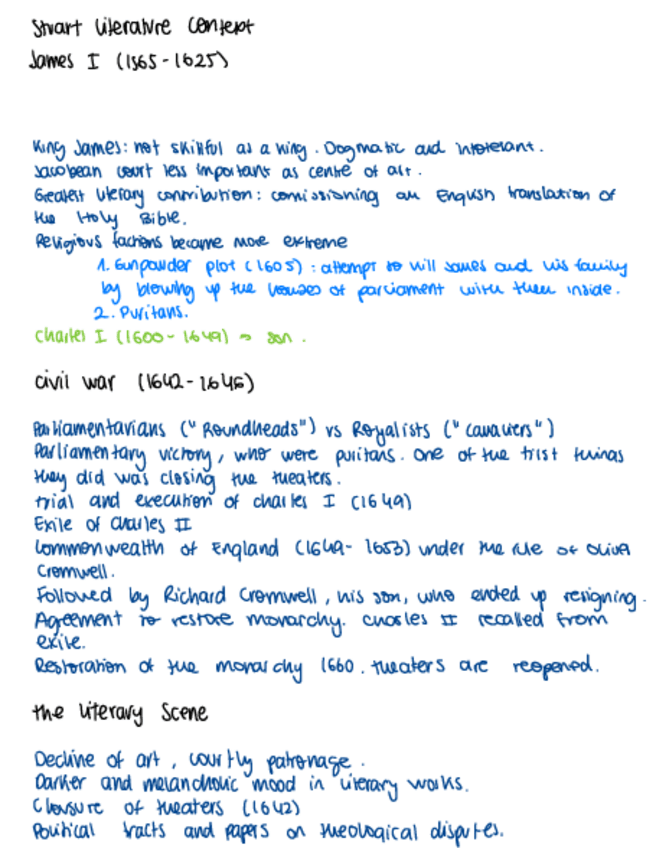 Stuart Literature Context
James I (1565-1625)
King James: not skillful as a king. Dogmatic and intolerant.
Jacobean court less important as centre of art.
Greatest literary contribution: comissioning an English translation of
the Holy Bible.
Religious factions became more extreme
1. Gunpowder plot (1605): attempt to kill James and his family
by blowing up the houses of parliament with them inside.
2. Puritans.
Charles I (1600-1649) → son.
civil war (1642-1646)
Parliamentarians ("Roundheads") vs Royalists ("cavaliers")
Parliamentary victory, who were puritans. One of the first things
they did was closing the theaters.
trial and execution of charles I (1649)
Exile of Charles II
Commonwealth of England (1649-1653) under the rule of Oliver
Cromwell.
Followed by Richard Cromwell, his son, who ended up resigning.
Agreement to restore monarchy. Charles II recalled from
exile.
Restoration of the monarchy 1660. theaters are reopened.
the Literary Scene
Decline of art, courtly patronage.
Darker and melancholic mood in literary works.
Closure of theaters (1642)
Political tracts and papers on theological disputes.